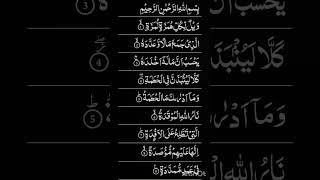 بِسْمِ اللهِ الرَّحْمٰنِ الرَّحِيْمِ
وَيْلٌ لِّكُلِّ هُمَزَةٍ لُّمَزَةٍ ۝۱
الَّذِيْ جَمَعَ مَالًا وَّعَدَّدَهٗ ۝۲
يَحْسَبُ اَنَّ مَالَهٗٓ اَخْلَدَهٗ ۝۳
كَلَّا لَيُنْۢبَذَنَّ فِي الْحُطَمَةِ ۝۴
وَمَآ اَدْرٰىكَ مَا الْحُطَمَةُ ۝۵
نَارُ اللهِ الْمُوْقَدَةُ ۝۶
الَّتِيْ تَطَّلِعُ عَلَى الْاَفْـِٕدَةِ ۝۷
اِنَّهَا عَلَيْهِمْ مُّؤْصَدَةٌ ۝۸
فِيْ عَمَدٍ مُّمَدَّدَةٍ ۝۹